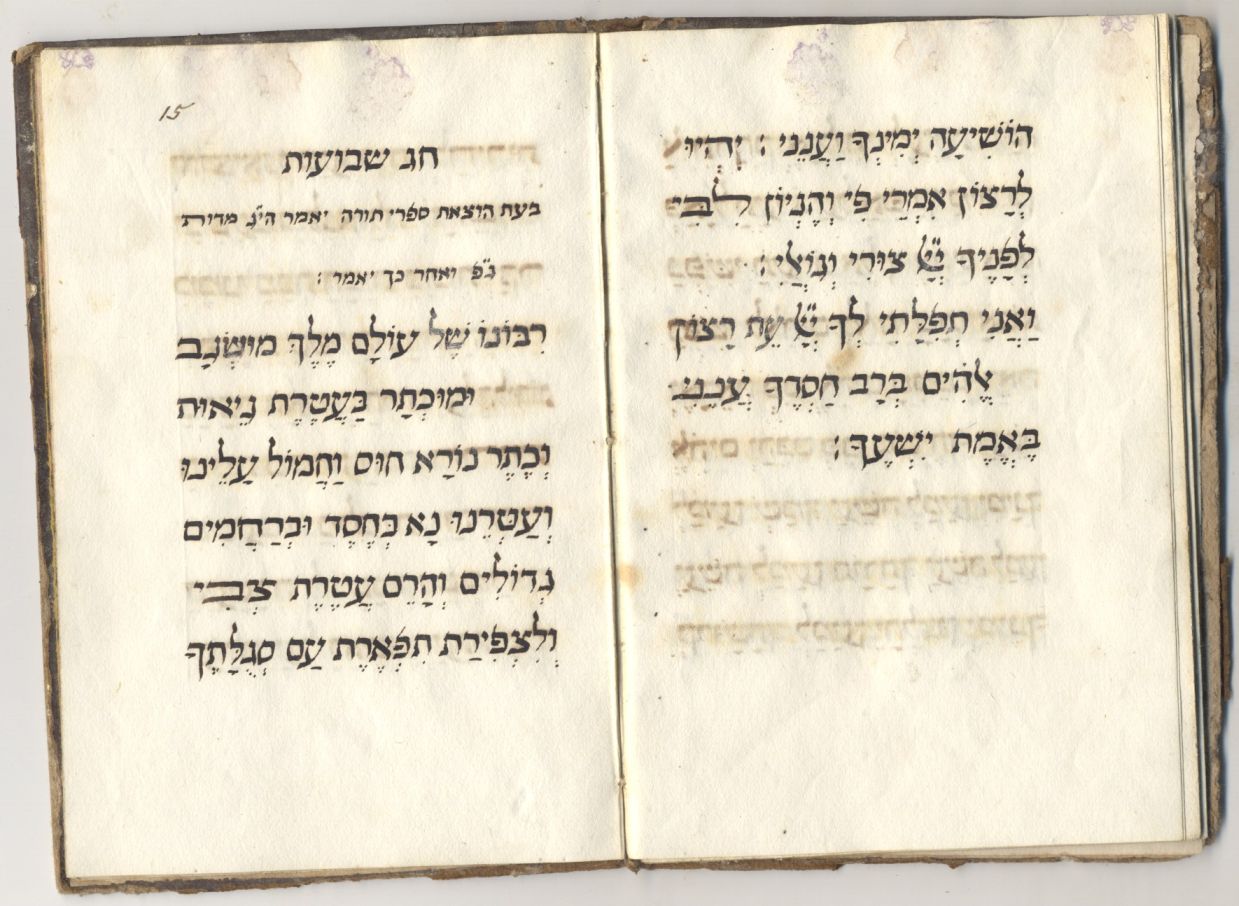 הוֹשִׁיעָה יְמִינְךָ וַעֲנֵנִי : יִהְיוּ
לְרָצוֹן אִמְרֵי פִי וְהֶגְיוֹן לִבִּי
לְפָנֶיךָ צוּרִי וְגוֹאֲלִי :
וַאֲנִי תְפִלָּתִי לְךָ עֵת רָצוֹן
אֱלֹהִים בְּרָב חַסְדֶּךָ עֲנֵנִי
בֶּאֱמֶת יִשְׁעֶךָ :
15
חג שבועות
בעת הוצאת ספרי תורה יאמר הי״ג מדות
ג״פ ואחר כך יאמר :
רִבּוֹנוֹ שֶׁל עוֹלָם מֶלֶךְ מוּשְׂגָב
וּמוּכְתָר בַּעֲטֶרֶת גֵיאוּת
וְכֶתֶר נוֹרָא חוּס וַחֲמוֹל עָלֵינוּ
וְעַטְּרֵנוּ נָא בְּחֶסֶד וּבְרַחֲמִים
גְדוֹלִים וְהָרֵם עֲטֶרֶת צְבִי
וְלִצְפִירַת תִּפְאֶרֶת עַם סְגֻלָּתֶךָ